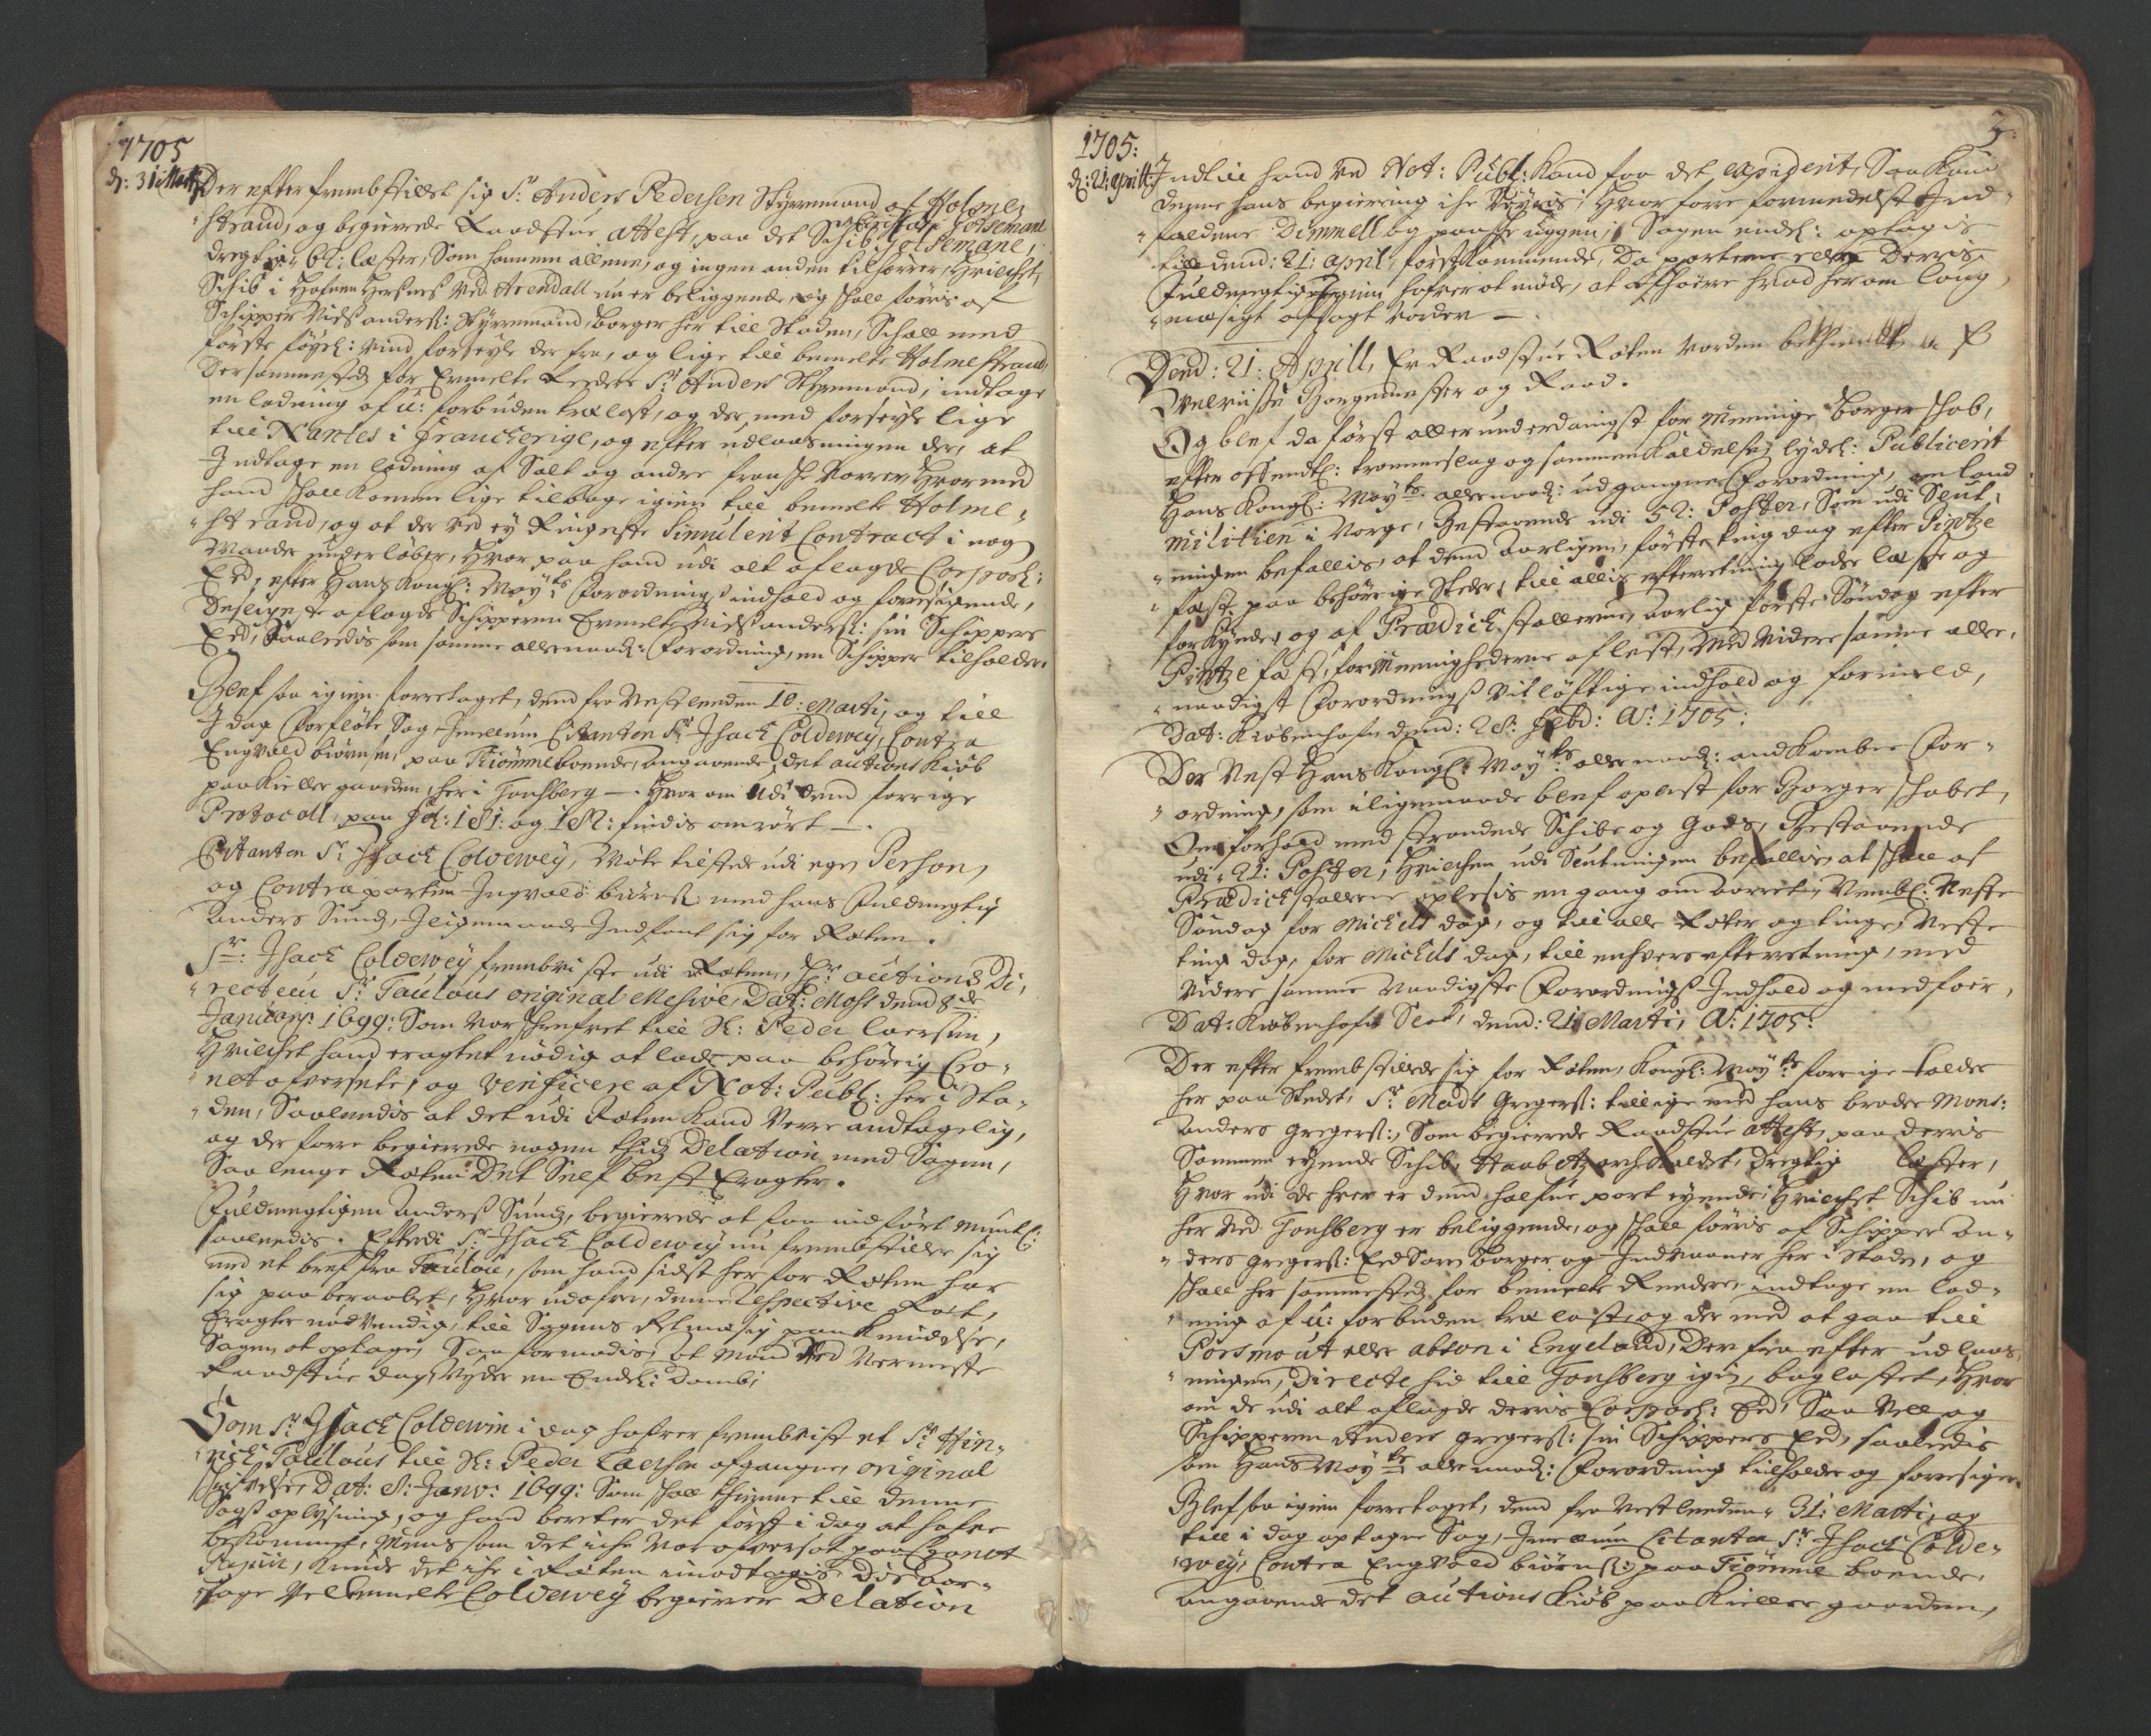 1705
d: 31 Martj
Der efter frembstillet sig Sr Anders Pedersen Styrremand af Holme
strand, og begierede Raadstue attest, paa det Schib Getsemane,
dregtig 61: lester, Som hannem allenne, og ingen anden tilhører, Hvilchet
Schib i Hafnen ved Arendall nu er beliggende, og schall føris af
Schipper Niels anders: Styrremand, borger her till Staden, Schall med
første føyel: vind forseyle der fra, og lige till bemelte Holmestrand,
Dersammested for Ermelte Reedere Sr Anders Styrmand, indtage
en ladning af u: forbuden trælast, og der med forseyle lige
till Nantes i Franckerige, og efter udlaasningen der, at
Indtage en ladning af Salt og andre fransche Varer, Hvormed
hand schall komme lige tilbage igien till bemelte Holme
strand, og at der ved ey Ringeste Simulerit Contract i nog
Maade underløber, Hvor paa hand udi alt aflagde Corporl:
Eed, efter Hans Kongl: Mayts Forordnings indhold og foresigende,
Desligeste aflagde Schipperen Ermelte Niels anders: sin Schippers
Eed, Saaledis som samme allernaad: Forordning, en Schipper tilholder.
Blef saa igien foretaget, dend fra Nestleeden 10: Martj og till
I dag Forfløte Sag Imellum Citanten Sr Jsack Coldewey, Contra
Engvold biørnsen, paa Tiømme boende, angaaende det auctions Kiøb
paa Kielle gaarden, her i Tonsberg — Hvor om udi dend forrige
Protocoll, paa fol: 181: og 182: findis omrørt —
Citanten Sr Jsack Coldewey, Møtte tilstede udi egen Person,
og Contraparten Ingvold biørns: med hans Fuldmegtig
Anders Sund, Iligemaade Indfant sig for Retten.
Sr: Jsack Coldewey frembviste udi Retten, Hr auctions Di
recteur Sr Taulous original Missive, Dat: Moss dend 8de
Januarij 1699: Som var schrefvet till Sl: Peder Laersen,
Hvilchet hand eragtet nødig at lade paa behørig Cro
net afversette, og verificere af Not: Publ: her i Sta
den, Saaleedis at det udi Retten kand Vere andtagelig,
og der fore begierede nogen thids Delation med Sagen,
Saalenge Retten Det Self best Eragter.
Fuldmegtigen Anders Sund, begierede at faa indført Muntl:
saaleedis. Efterdi Sr Jsack Coldewey nu frembstiller sig
med et bref fra Taulou, som hand sidst her for Retten har
sig paa beraabet, Hvor udofver, denne respective Rett,
Eragter nødvendig, till Sagens Retmesig paakiendelse,
Sagen at optage, Saa formodis, at Mand ved Nermeste
Raadstue dag, Nyder en Endel: domb;
Som Sr Jsack Coldewin i dag hafver frembvist et Sr Hin
rich Taulous till Sl: Peder Laersen afgangne, original
schrifvelse, Dat: 8: Janv: 1699: Som schall thiene till denne
Sags oplysning, og hand beretter det først i dag at hafve
bekommet, Mens som det iche Var afversat paa Cronet
Papiir, kunde det iche i Retten imodtagis, Dis aar
sage Velermelte Coldewey begierer Delation
1705:
d: 21: aprill:
3:
Indtil hand ved Not: Publ: kand faa det Copierit, Saa kand
denne hans begiering iche Vegris; Hvor fore formedelst Ind
faldene og paasche uggen, Sagen endel: optagis
till dend: 21: april, førstkommende, Da parterne eller Derris
Fuldmegtige igien hafver at møde, at afhøre hvad her om lovg
mesigt afsagt vorder —
Dend: 21: Aprill, Er Raadstue Retten vorden
Velviise Borgemester og Raad.
Og blef da først allerunderdanigst for menige Borgerschab,
efter offendtl: trommeslag og sammenkaldelse, lydel: Publicerit
Hans Kongl: Mayts allernaad: udgangne Forordning, om land
militien i Norge, Bestaaende udi 52: Poster, Som udi Slut
ningen befallis, at dend aarligen, første ting dag efter Pintze
fast, paa behørige Steder, till allis efterretning lades læsse og
forkynde, og af Prædichestollerne, aarlig første Søndag efter
Pintze fast, for Meenighederne aflest, Med Videre samme aller
naadigst Forordnings Vitløftige indhold og formeld,
Dat: Kiøbenhafn dend: 28: Febr: Ao: 1705:
Der Nest Hans Kongl: Mayts allernaad: andkombne For
ordning, som iligemaade blef oplæst for Borgerschabet,
Om forhold med strandede Schibe og Gods, Bestaaende
udi 21: Poster, Hvilchen udi Slutningen befallis, at schall af
Prædichestollene oplesis en gang om aaret, Nembl: Neste
Søndag for Michels dag, og till alle Retter og tinge, Neste
ting dag, for Michels dag, till enhvers efterretning, med
Videre samme Naadigste Forordnings Indhold og medfør,
Dat: Kiøbenhafns Slot, dend: 21 Martj, Ao: 1705:
Der efter frembstillede sig for Retten, Kongl: Mayts forige tolder
her paa Stedet, Sr Mads Gregers: tillige med hans broder Mons:
Anders Gregers:, Som begierede Raadstue attest, paa derris
Sammen eyende Schib, Haabet kaldet, dregtig lester,
Hvor udi de hver er dend halfve part eyende, Hvilchet Schib nu
her ved Tonsberg er beliggende, og schall føris af Schipper An
ders Gregers: Eed Soren borger og Indvaaner her i Staden, og
schall her sammested, for bemelte Reedere, indtage en lad
ning af u: forbuden trælast, og der med at gaa till
Porsmout eller abson i Engeland, Derfra efter udlaas
ningen, Directe hid till Tonsberg igien, baglastet, Hvor
om de udi alt aflagde derris Corporl: Eed, Saa Vell og
Schipperen Anders Gregers: sin Schippers Eed, saaleedis
som Hans Mayts allernaad: Forordning tilholder og foresiger.
Blef saa igien foretaget, dend fra Nestleeden 31: Martj, og
till i dag optagne Sag, Imellum Citanten Sr Jsack Colde
wey, Contra Engvold biørns: paa Tiømme boende,
angaaende det auctions Kiøb paa Kielle gaarden,